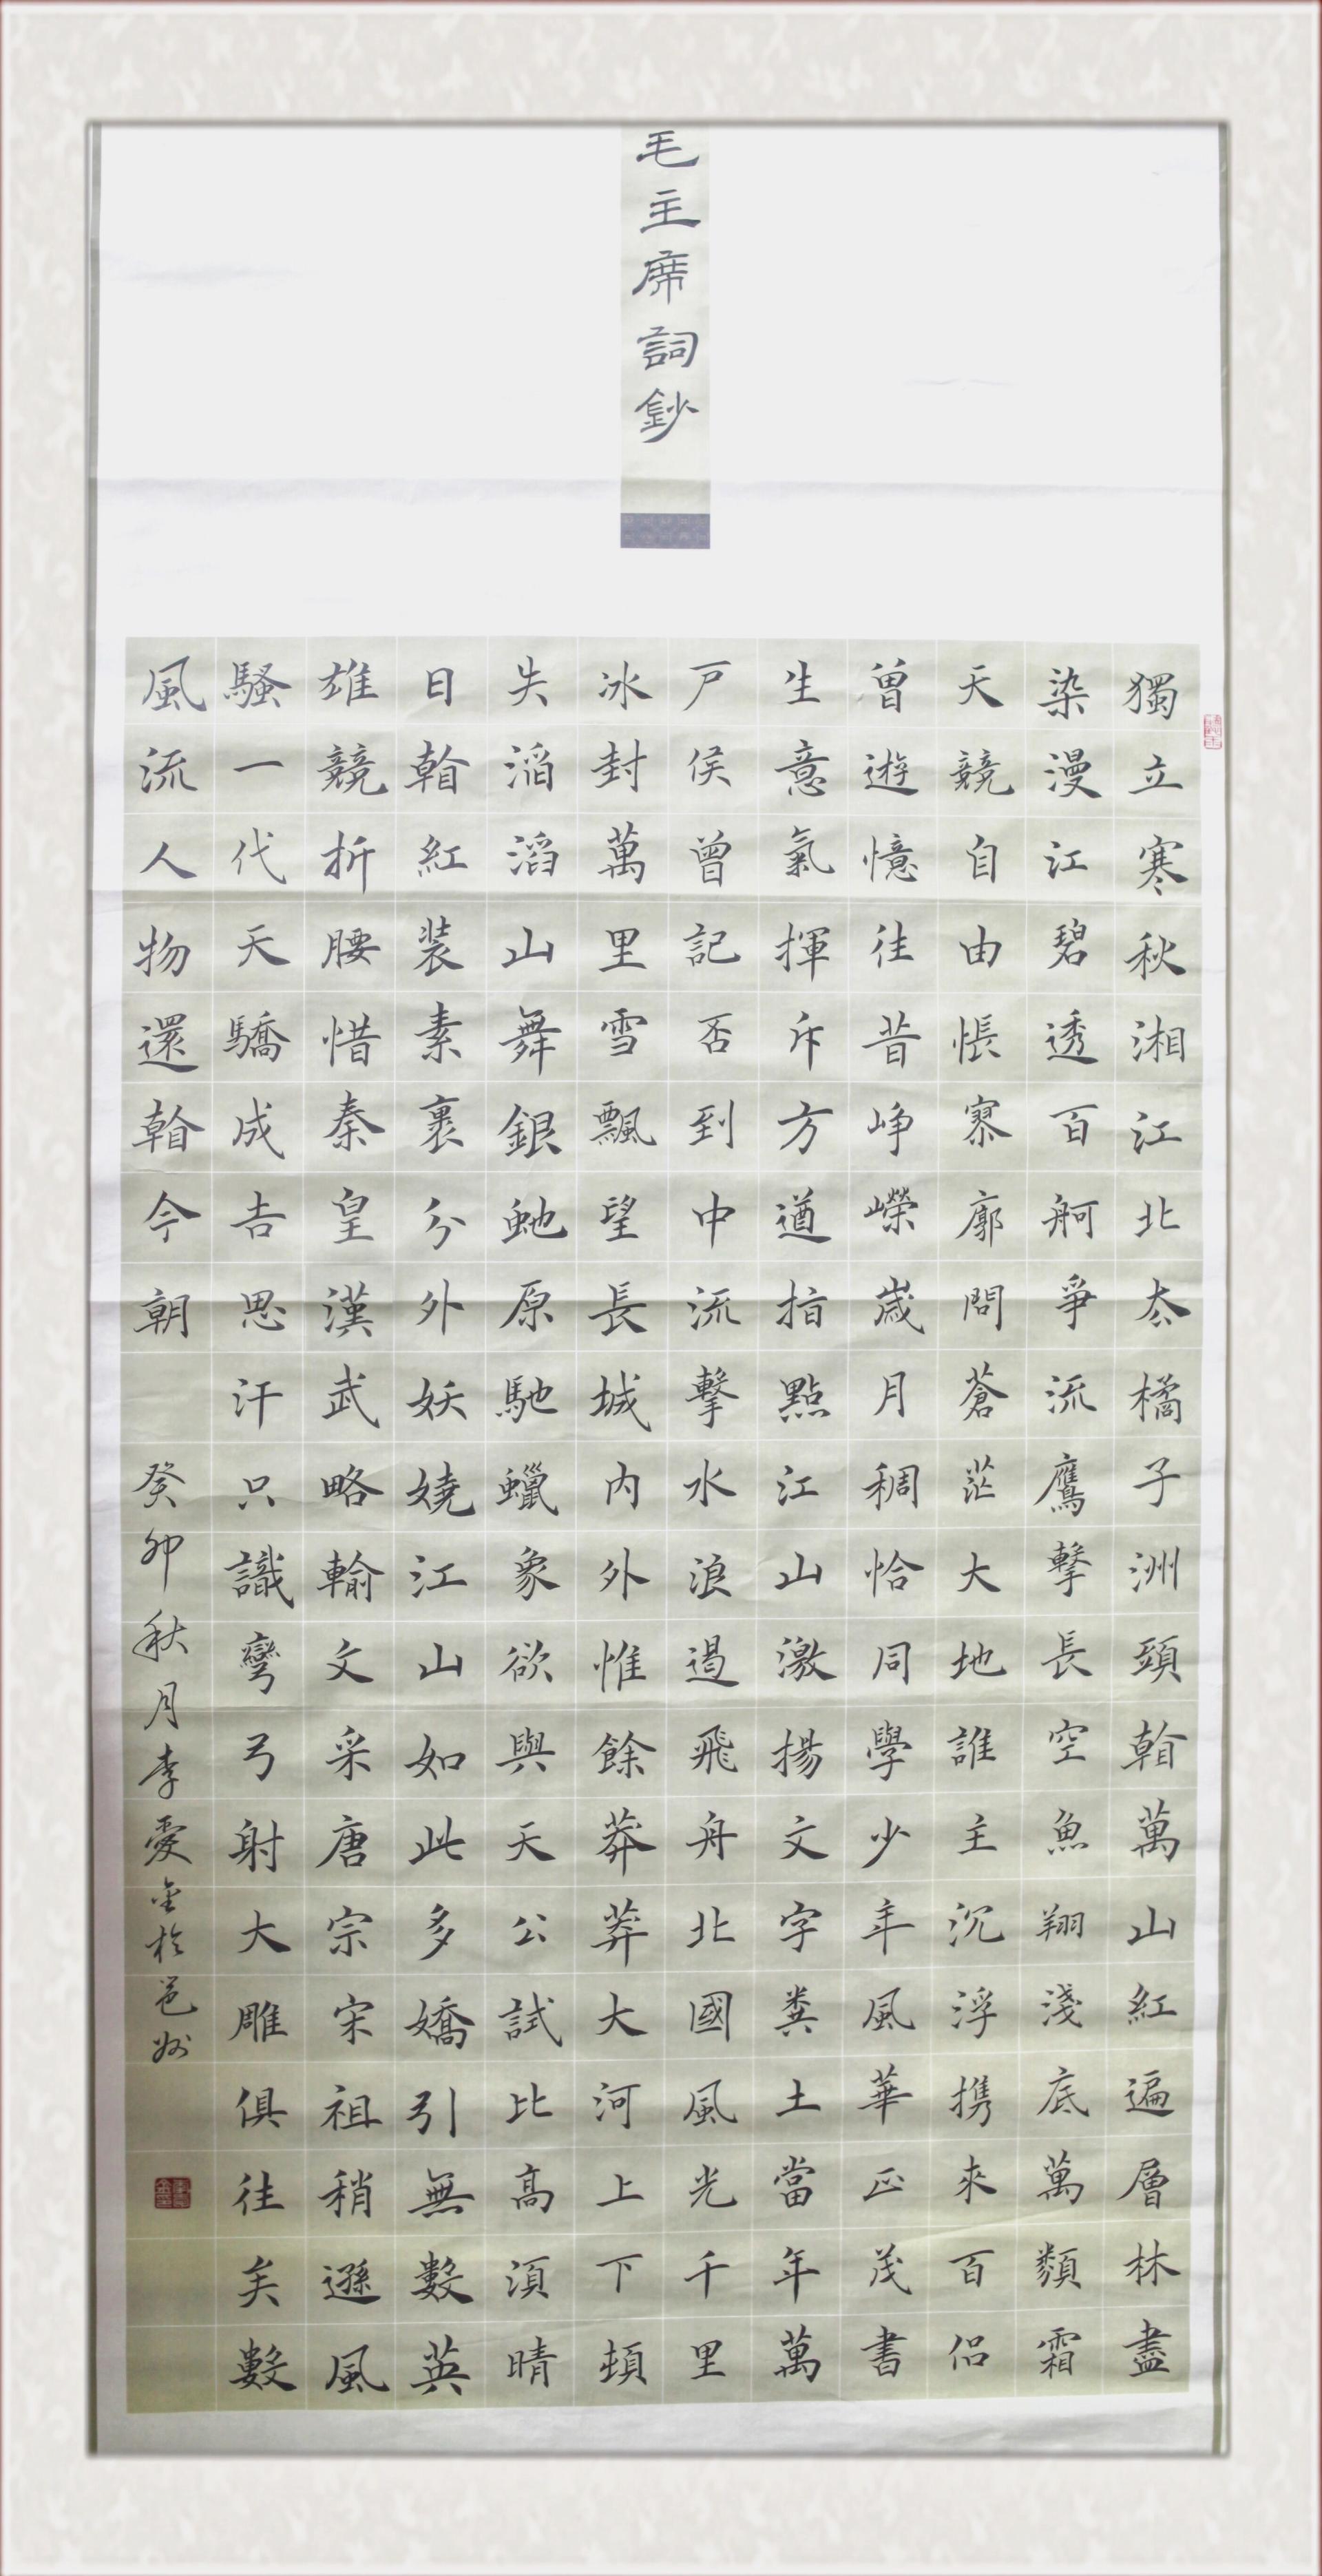 毛主席詞鈔
獨立寒秋湘江北厺橘子洲頭看萬山紅遍層林盡
染漫江碧透百舸爭流鷹擊長空魚翔淺底萬類霜
天競自由悵寥廓問蒼茫大地誰主沉浮携來百侶
曾遊憶往昔崢嶸歲月稠恰同學少年風華正茂書
生意氣揮斥方遒指點江山激揚文字糞土當年萬
戶侯曾記否到中流擊水浪遏飛舟北國風光千里
冰封萬里雪飄望長城內外惟餘莽莽大河上下頓
失滔滔山舞銀虵原馳蠟象欲與天公試比高須晴
日看紅裝素裹分外妖嬈江山如此多嬌引無數英
雄競折腰惜秦皇漢武略輸文采唐宗宋祖稍遜風
騷一代天驕成吉思汗只識彎弓射大雕俱往矣數
風流人物還看今朝 癸卯秋月李愛金於邕州